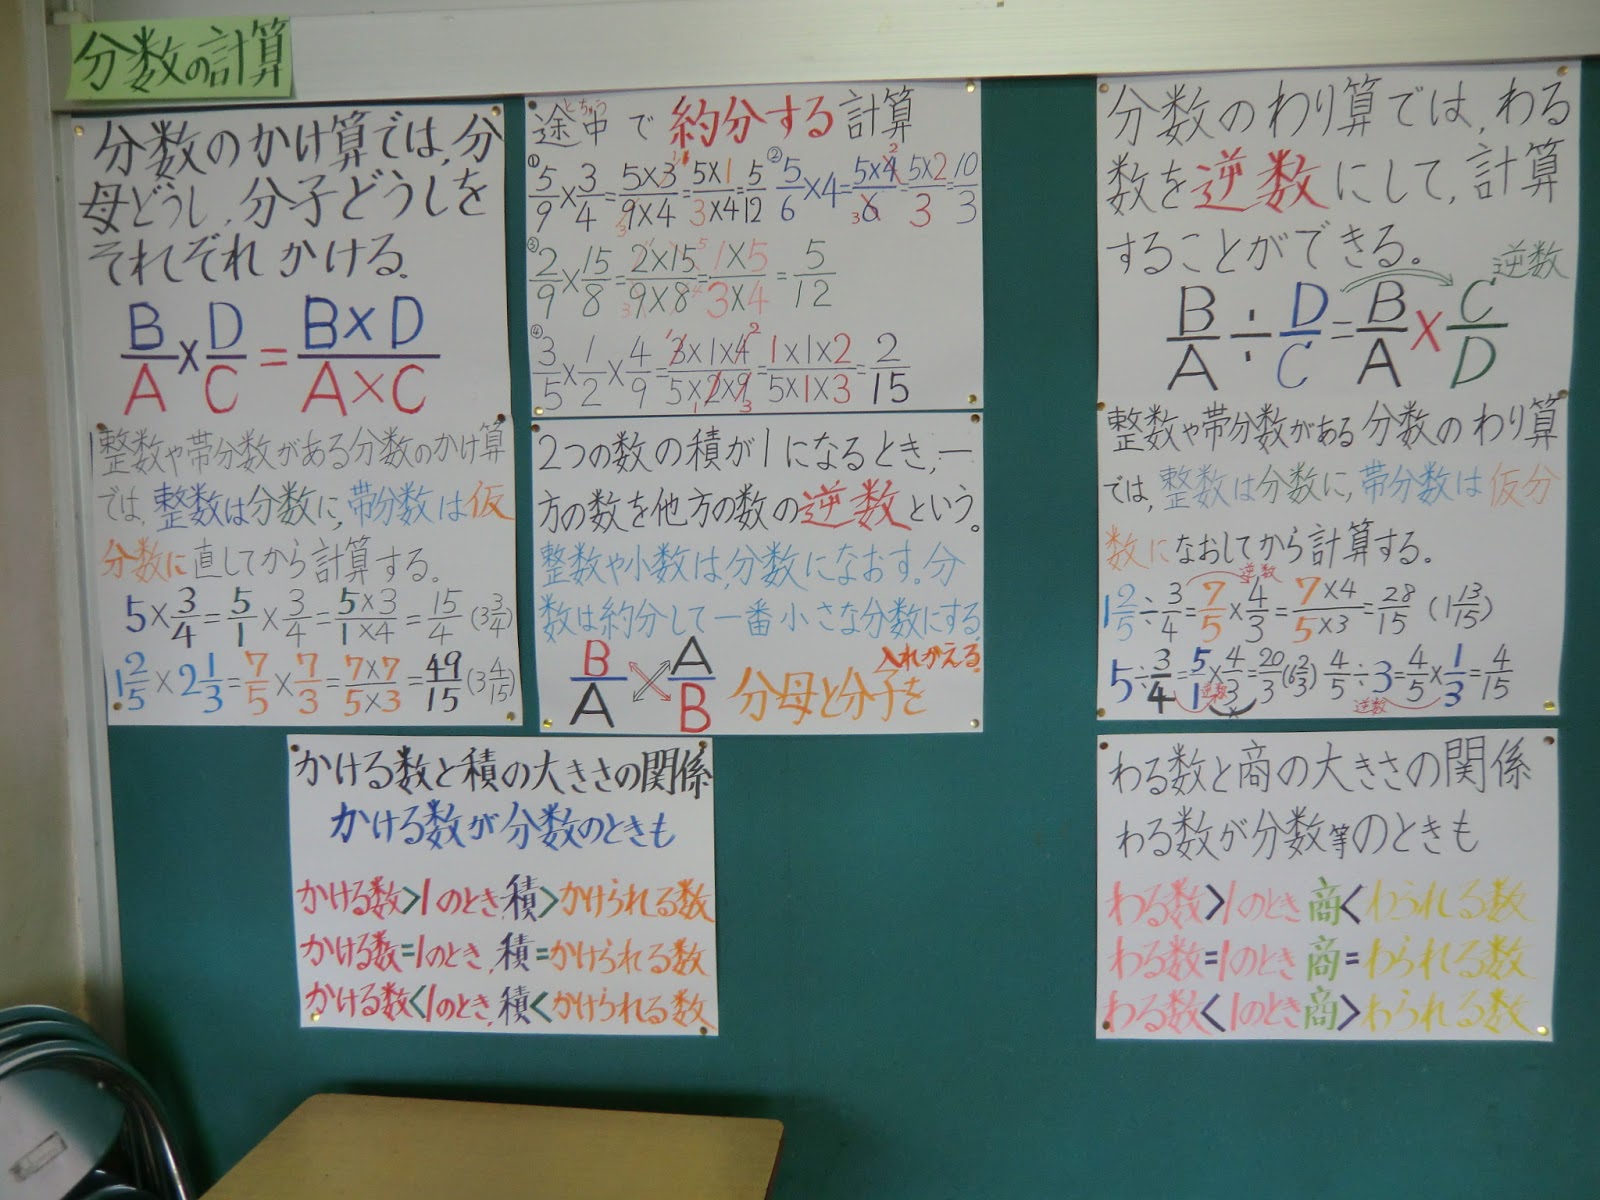 分数の計算
分数のかけ算では,分
母どうし,分子どうしを
それぞれ かける。
B/A × D/C = B×D/A×C
整数や帯分数がある分数のかけ算
では,整数は分数に,帯分数は仮
分数に直してから計算する。
5×3/4=5/1×3/4=5×3/1×4=15/4(3 3/4)
1 2/5×2 1/3=7/5×7/3=7×7/5×3=49/15(3 4/15)
とちゅう
途中で 約分する計算
①5/9×3/4=5×3/9×4=5×1/3×4=5/12 ②5/6×4=5×4/6=5×2/3=10/3
1 3 2 3
③2/9×15/8=2×15/9×8=1×5/3×4=5/12
1 5 3 4
④3/5×1/2×4/9=3×1×4/5×2×9=1×1×2/5×1×3=2/15
1 2 1 3
2つの数の積が1になるとき,一
方の数を他方の数の逆数という。
整数や小数は,分数になおす。分
数は約分して一番小さな分数にする。
B/A A/B 分母と分子を
入れかえる。
分数のわり算では,わる
数を逆数にして,計算
することができる。
逆数
B/A÷D/C=B/A×C/D
整数や帯分数がある分数のわり算
では,整数は分数に,帯分数は仮分
数になおしてから計算する。
逆数
1 2/5÷3/4=7/5×4/3=7×4/5×3=28/15(1 13/15)
5÷3/4=5/1×4/3=20/3(6 2/3) 4/5÷3=4/5×1/3=4/15
逆数 逆数
かける数と積の大きさの関係
かける数が分数のときも
かける数>1のとき,積>かけられる数
かける数=1のとき,積=かけられる数
かける数<1のとき,積<かけられる数
わる数と商の大きさの関係
わる数が分数等のときも
わる数>1のとき 商<わられる数
わる数=1のとき 商=わられる数
わる数<1のとき 商>わられる数